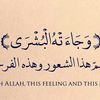 وَجَاءَتْهُ الْبُشْرَى
هذا الشعور وهذه
H ALLAH, THIS FEELING AND THIS